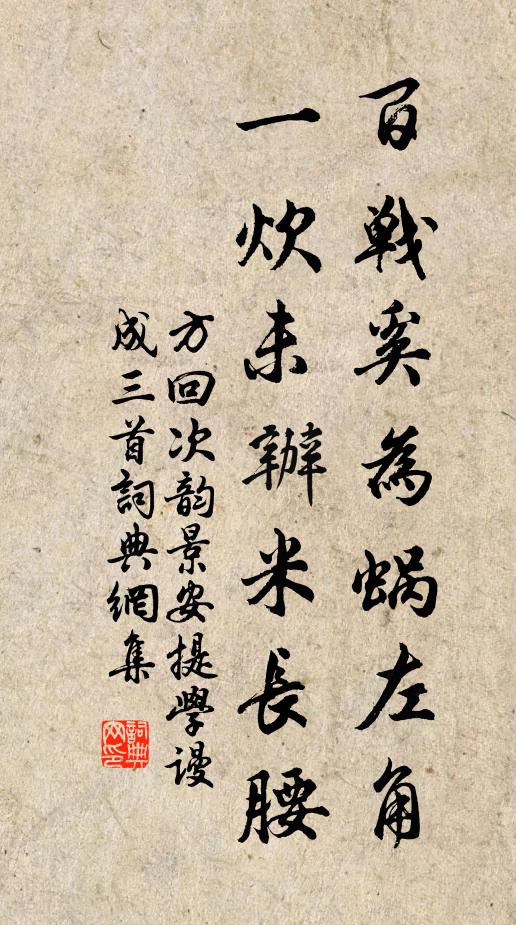 百戦奚為蝸左角
一炊未辦米長腰
方回次韵景安提學谩
成三首詞典網集
詞典
网印